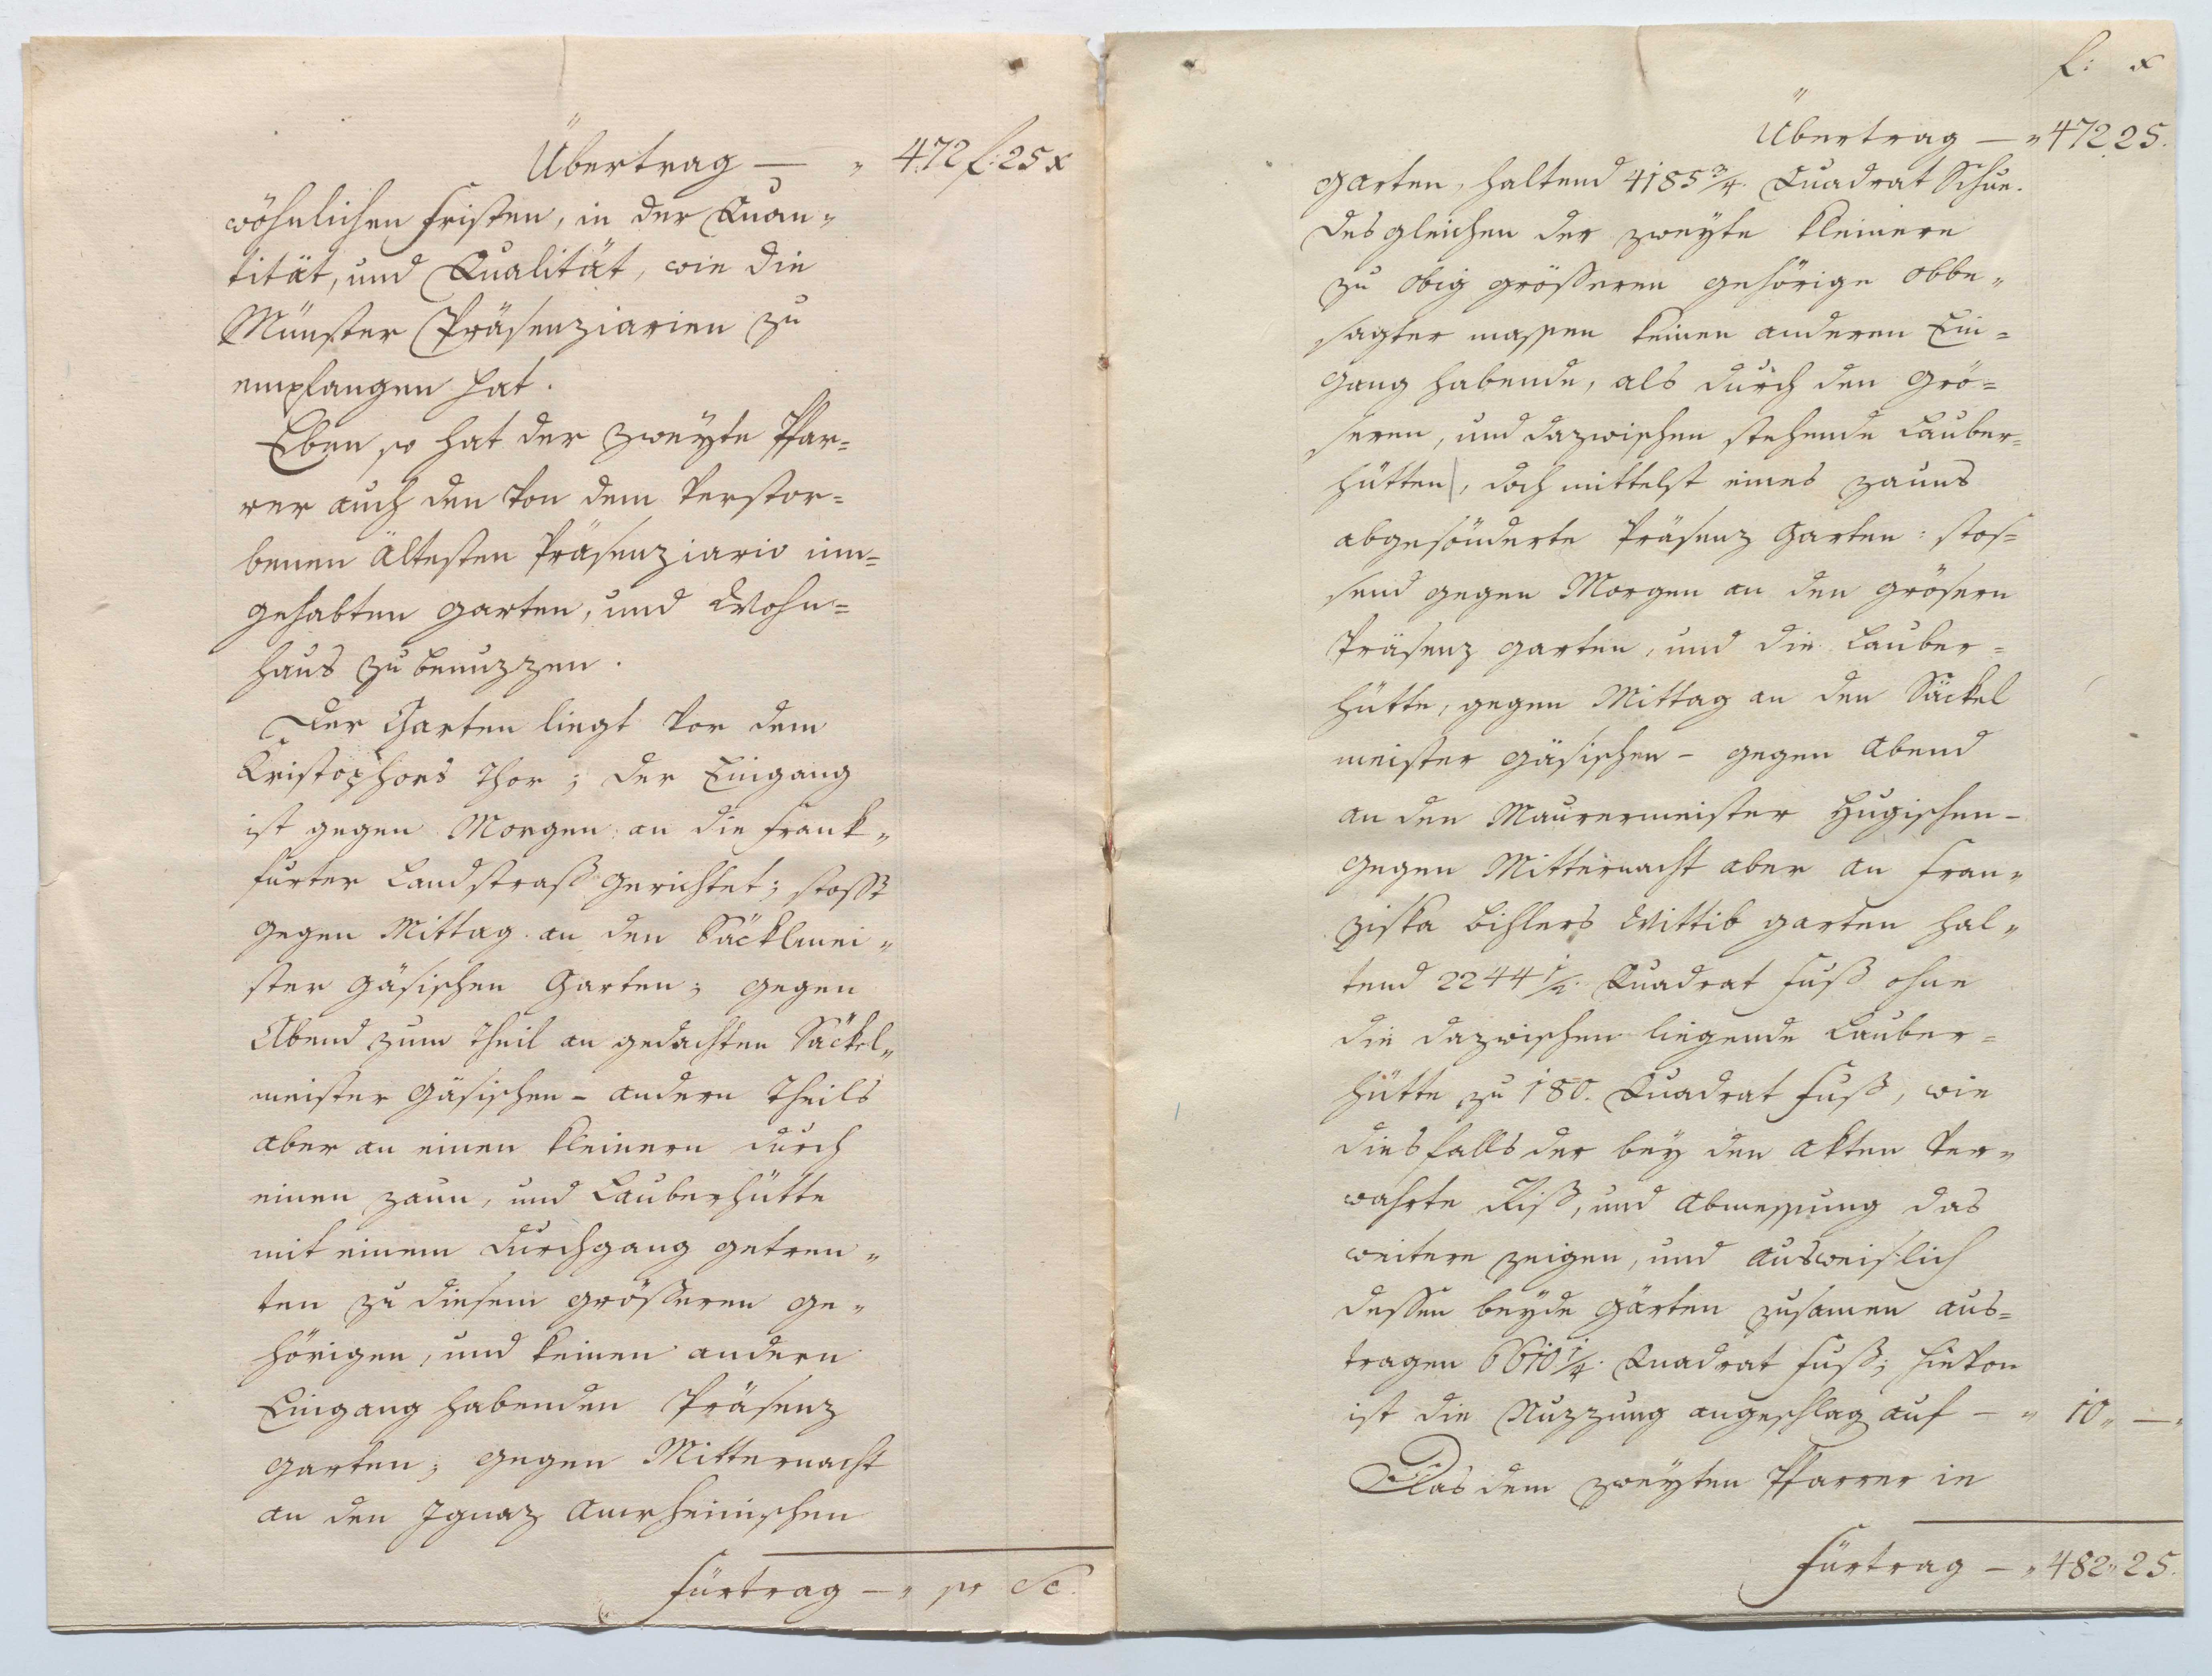 Übertrag — „ 472 f: 25 x
wöhnlichen Fristen, in der Quan„
tität, und Qualität, wie die
Münster Präsenziarien zu
empfangen hat.
Eben so hat der zweyte Pfar=
rer auch den von dem verstor=
benen ältesten Präsenziario inn=
gehabten Garten, und Wohn=
haus zu benuzzen.
Der Garten liegt vor dem
Kristophors Thor; der Eingang
ist gegen Morgen an die Frank„
furter Landstraß gerichtet; stosst
gegen Mittag an den Säcklmei„
ster Gäsischen Garten; gegen
Abend zum Theil an gedachten Säckel„
meister Gäsischen – andern Theils
aber an einen kleinern durch
einen Zaun, und Lauberhütte
mit einem Durchgang getren„
ten zu diesem grösseren ge„
hörigen, und keinen andern
Eingang habenden Präsenz
Garten; gegen Mitternacht
an den Ignaz Amrheinischen
Fürtrag — „ pr Se.
f: x
Übertrag — „ 472 25.
Garten, haltend 4185 3/4. Quadrat Schue.
desgleichen der zweyte kleinere
zu obig grösseren gehörige obbe„
sagter massen keinen anderen Ein=
gang habende, als durch den grö=
seren, und dazwischen stehende Lauber=
hütten, doch mittelst eines Zauns
abgesönderte Präsenz Garten: stos=
send gegen Morgen an den grösern
Präsenz Garten, und die Lauber=
hütte, gegen Mittag an den Säckel
meister Gäsischen – gegen Abend
an den Maurermeister Hugischen –
gegen Mitternacht aber an Fran„
ziska Bihlers Wittib Garten hal„
tend 2244 1/2. Quadrat Fuß ohne
die dazwischen liegende Lauber=
hütte zu 180. Quadrat Fuß, wie
diesfalls der bey den Akten ver„
wahrte Riß, und Abmessung das
weitere zeigen, und ausweislich
dessen beyde Gärten zusamen aus=
tragen 6610 1/4. Quadrat Fuß; hievon
ist die Nuzzung angeschlag auf — „ 10„ —„
Das dem zweyten Pfarrer in
Fürtrag — „ 482„ 25.